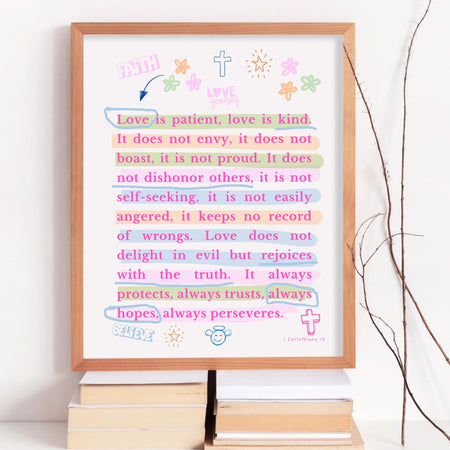 FAITH
LOVE
yourself
Love is patient, love is kind.
It does not envy, it does not
boast, it is not proud. It does
not dishonor others, it is not
self-seeking, it is not easily
angered, it keeps no record
of wrongs. Love does not
delight in evil but rejoices
with the truth. It always
protects, always trusts, always
hopes, always perseveres.
BELIEVE
1 Corinthians 13